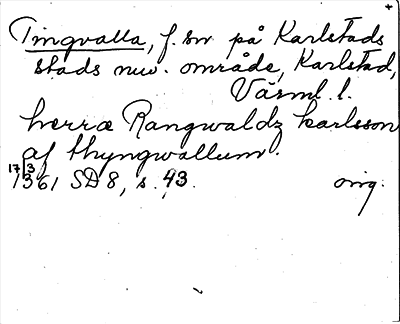 Tingvalla, f. sn på Karlstads
stads nuv. område, Karlstad,
Värml. l.
herra Rangwaldz karlsson
af thyngwallum.
17/3 1361 SD 8, s. 43. orig.